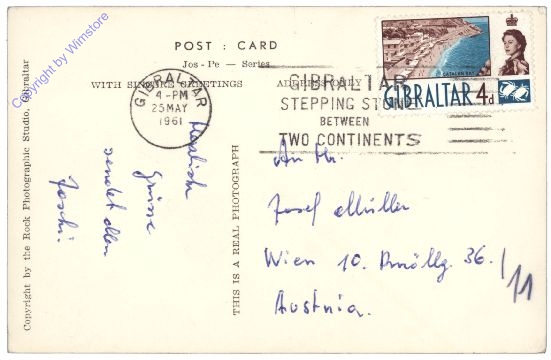 POST : CARD
Jos - Pe — Series
WITH SINCERE GREETINGS
ADDRESS ONLY
Copyright by Wimstore
Copyright by the Rock Photographic Studio, Gibraltar
GIBRALTAR
4-PM
25 MAY
1961
GIBRALTAR
STEPPING STONE
BETWEEN
TWO CONTINENTS
CATALAN BAY
GIBRALTAR 4d
Herzliche
Grüsse
sendet allen
Joschi.
THIS IS A REAL PHOTOGRAPH
An Hr.
Josef Müller
Wien 10. 36. / 11
Austria.